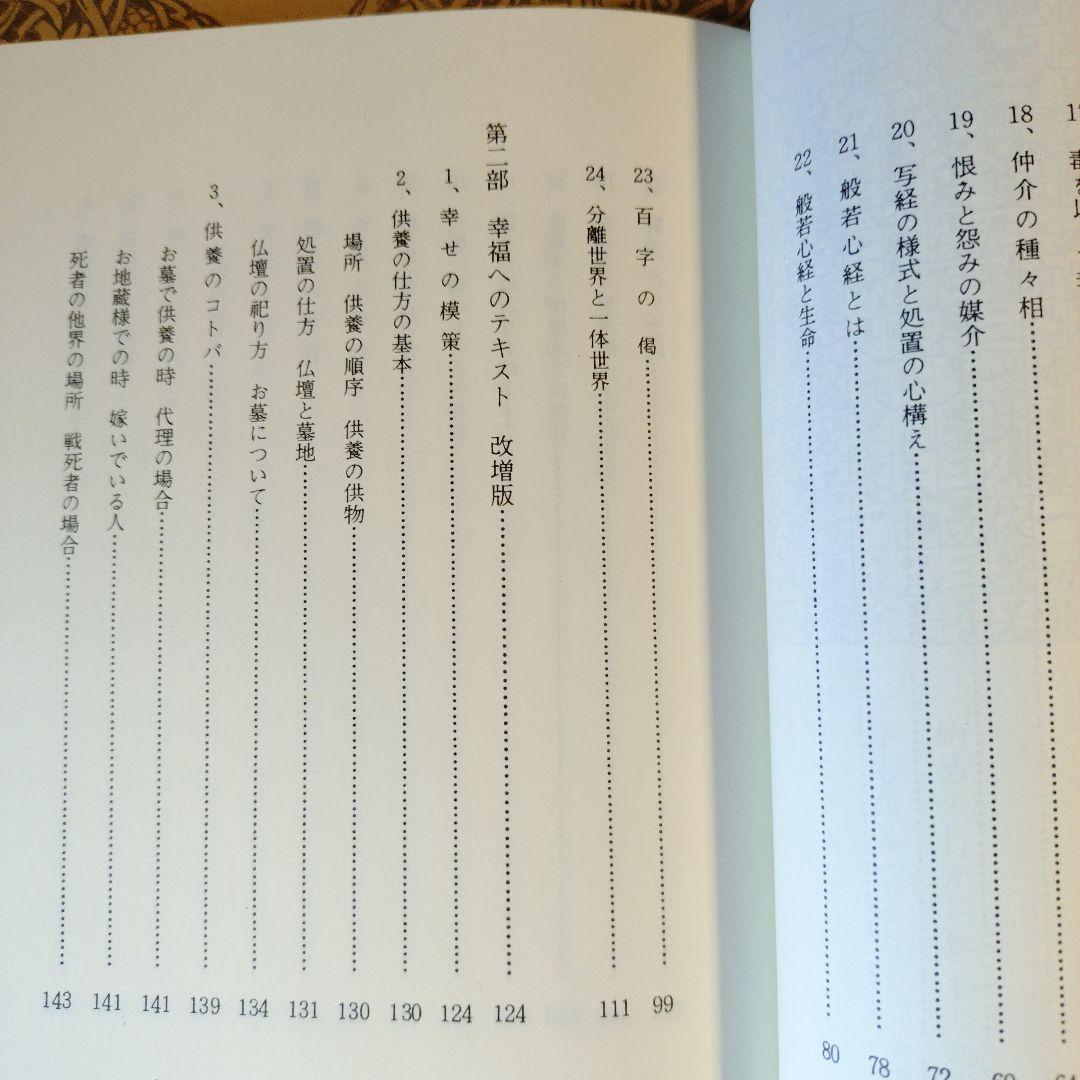 18、仲介の種々相
19、恨みと怨みの媒介
20、写経の様式と処置の心構え……72
21、般若心経とは……78
22、般若心経と生命……80
23、百字の偈……99
24、分離世界と一体世界……111
第二部　幸福へのテキスト　改増版……124
1、幸せの模策……124
2、供養の仕方の基本……130
場所　供養の順序　供養の供物……130
処置の仕方　仏壇と墓地……131
仏壇の祀り方　お墓について……134
3、供養のコトバ……139
お墓で供養の時　代理の場合……141
お地蔵様での時　嫁いでいる人……141
死者の他界の場所　戦死者の場合……143